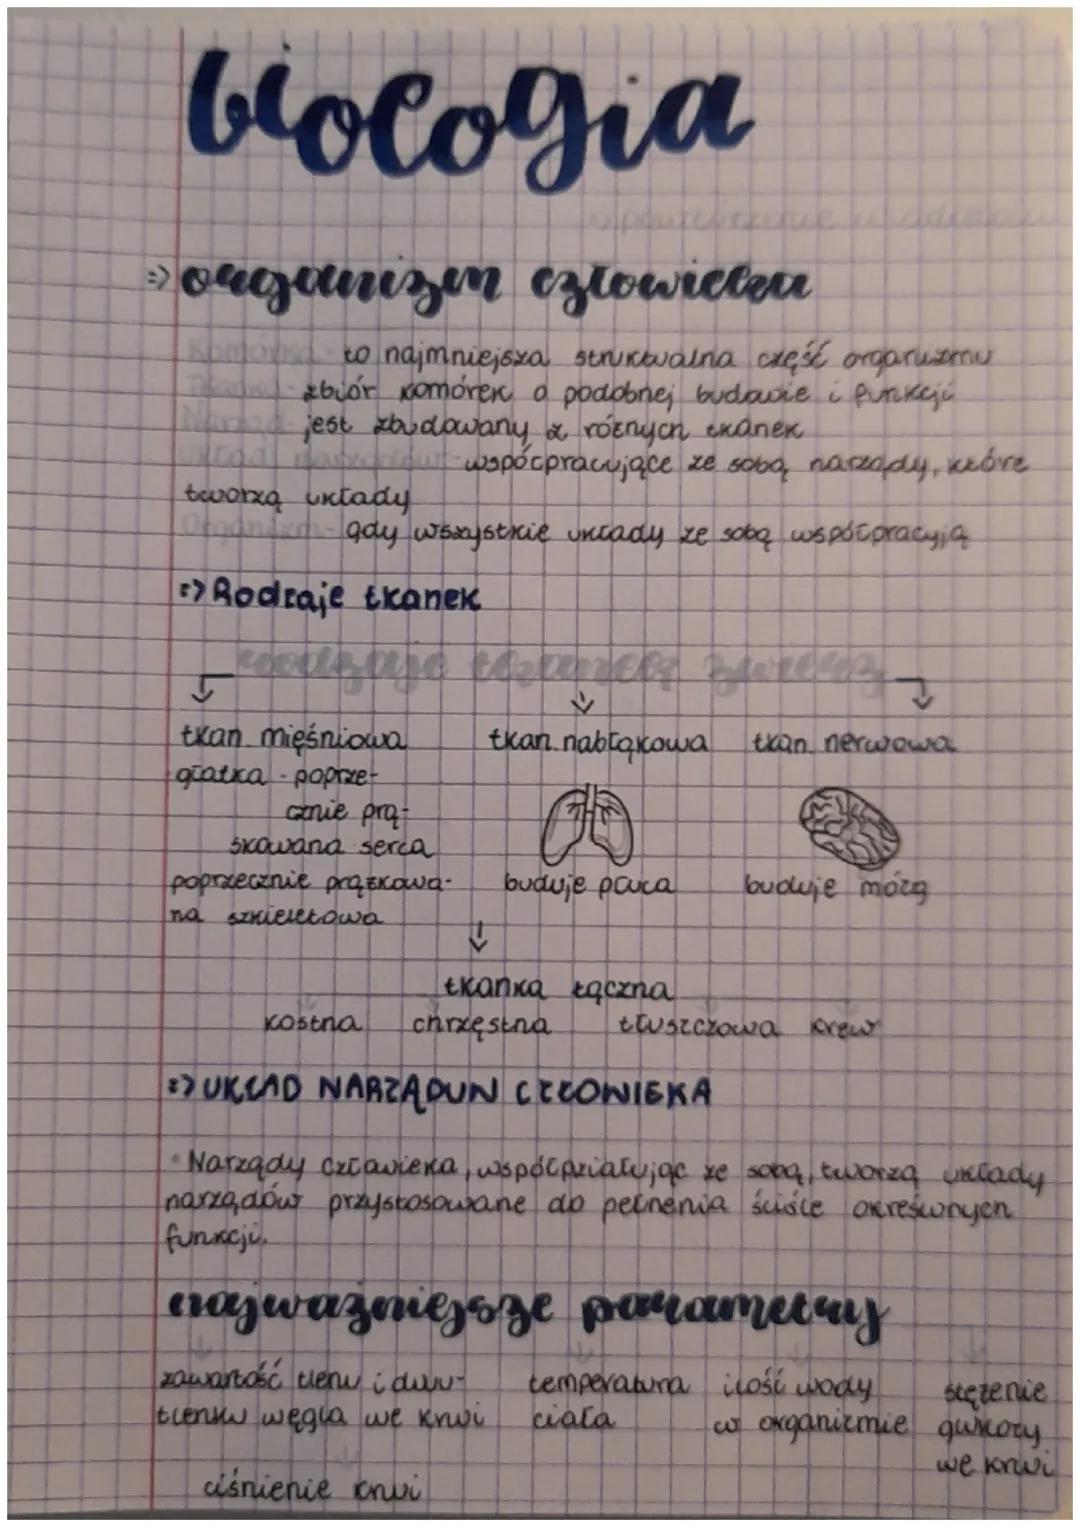 biologia
powtórzenie wiadomości
=> organizm człowieka
Komórka - to najmniejsza strukturalna część organizmu
Tkanka - zbiór komórek o podobnej budowie i funkcji
Narząd - jest zbudowany z różnych tkanek
Układ narządów - współpracujące ze sobą narządy, które
tworzą układy
Organizm - gdy wszystkie układy ze sobą współpracują
=> Rodzaje tkanek
rodzaje tkanek zwierz
tkan. mięśniowa tkan. nabłąkowa tkan. nerwowa
gładka - poprze-
cznie prą-
skowana serca
poprzecznie prążkowa- buduje płuca buduje mózg
na szkieletowa
tkanka łączna
kostna chrzęstna tłuszczowa krew
=> UKŁAD NARZĄDÓW CZŁOWIEKA
• Narządy człowieka, współdziałując ze sobą, tworzą układy
narządów przystosowane do pełnenia ściśle określonych
funkcji.
najważniejsze parametry
zawartość tlenu i dwu- temperatura ilość wody stężenie
tlenku węgla we krwi ciała w organizmie glukozy
we krwi
ciśnienie krwi